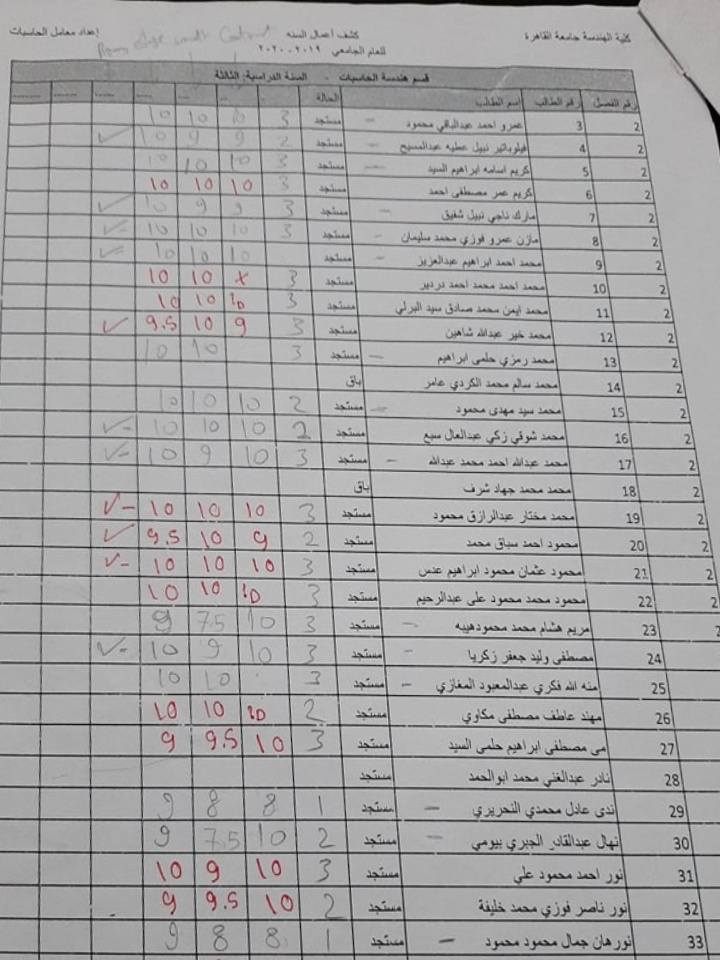 كلية الهندسة جامعة القاهرة كشف أعمال السنه إعداد معامل الحاسبات
للعام الجامعي ٢٠١٩-٢٠٢٠
قسم هندسة الحاسبات - السنة الدراسية: الثالثة
رقم الفصل رقم الطالب اسم الطالب الحالة
2 3 عمرو احمد عبدالباقي محمود مستجد 3 10 10 10
2 4 فيلوباتير نبيل عطيه عبدالمسيح مستجد 2 9 9 10 ✓
2 5 كريم اسامه ابراهيم السيد مستجد 3 10 10 10
2 6 كريم عمر مصطفى احمد مستجد 3 10 10 10
2 7 مارك ناجي نبيل شفيق مستجد 3 9 9 10 ✓
2 8 مازن عمرو فوزي محمد سليمان مستجد 3 10 10 10 ✓-
2 9 محمد احمد ابراهيم عبدالعزيز مستجد 10 10 10 ✓-
2 10 محمد احمد محمد احمد دردير مستجد 3 x 10 10
2 11 محمد ايمن محمد صادق سيد البرلي مستجد 3 10 10 10
2 12 محمد خير عبدالله شاهين مستجد 3 9 10 9.5 ✓
2 13 محمد رمزي حلمى ابراهيم مستجد 3 10 10
2 14 محمد سالم محمد الكردي عامر باق
2 15 محمد سيد مهدى محمود مستجد 2 10 10 10
2 16 محمد شوقي زكي عبدالعال سبع مستجد 2 10 10 10 ✓-
2 17 محمد عبدالله احمد محمد عبدالله مستجد 3 10 9 10 ✓-
2 18 محمد محمد جهاد شرف باق
2 19 محمد مختار عبدالرازق محمود مستجد 3 10 10 10 ✓-
2 20 محمود احمد سباق محمد مستجد 2 9 10 9.5 ✓
2 21 محمود عثمان محمود ابراهيم عنس مستجد 3 10 10 10 ✓-
2 22 محمود محمد محمود على عبدالرحيم مستجد 3 10 10 10
2 23 مريم هشام محمد محمودهيبه مستجد 3 10 7.5 9
24 مصطفى وليد جعفر زكريا مستجد 3 10 9 10 ✓-
25 منه الله فكري عبدالمعبود المغازي مستجد 3 10 10
26 مهند عاطف مصطفى مكاوي مستجد 2 10 10 10
27 مى مصطفى ابراهيم حلمى السيد مستجد 3 10 9.5 9
28 نادر عبدالغني محمد ابوالحمد مستجد
29 ندى عادل محمدي النحريري مستجد 1 8 8 9
30 نهال عبدالقادر الجبري بيومي مستجد 2 10 7.5 9
31 نور احمد محمود علي مستجد 3 10 9 10
32 نور ناصر فوزي محمد خليفة مستجد 2 10 9.5 9
33 نورهان جمال محمود محمود مستجد 1 8 8 9